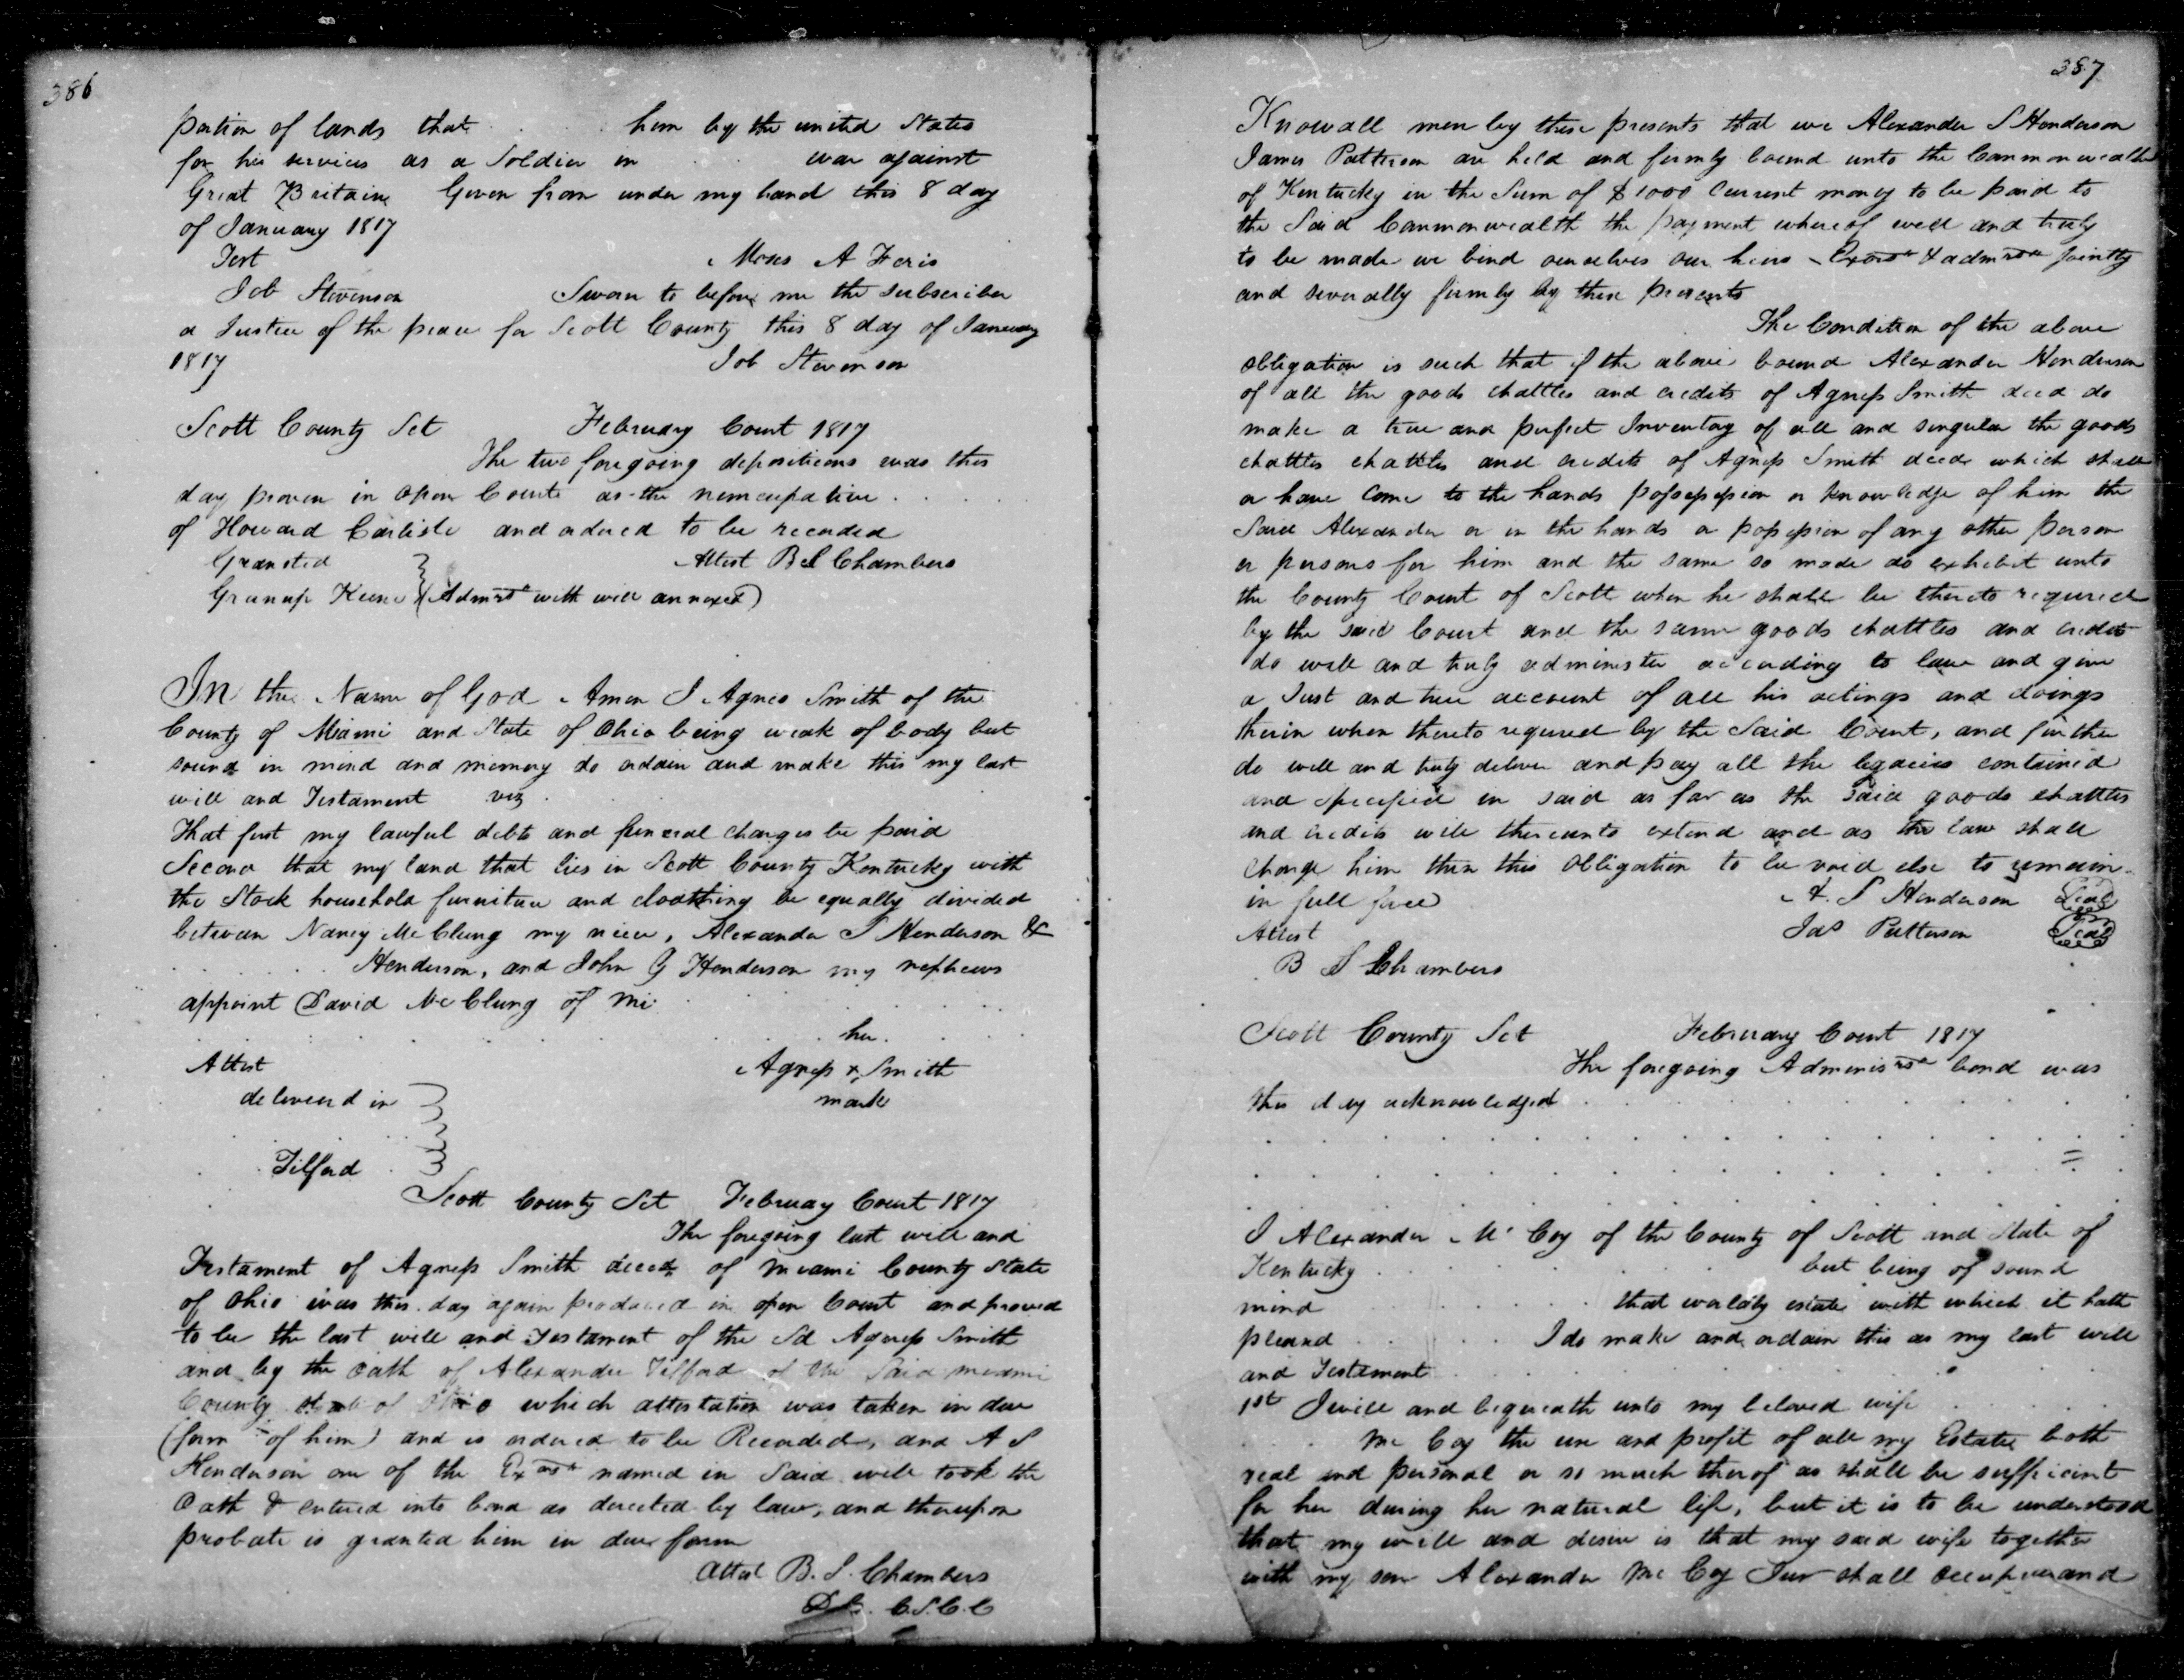 386
portion of lands that . . . him by the united States
for his services as a Soldier in . . war against
Great Britain Given from under my hand this 8 day
of January 1817
Test
Moses A Feris
Job Stevenson
Sworn to before me the subscriber
a Justice of the peace for Scott County this 8 day of January
1817
Job Stevenson
Scott County Sct February Court 1817
The two foregoing depositions was this
day proven in open Court as the nuncupative . . . .
of Howard Carlisle and ordered to be recorded
Attest B S Chambers
Granted
Keene (Admrs with will annexed)
In the Name of God Amen I Agnes Smith of the
County of Miami and State of Ohio being weak of body but
sound in mind and memory do ordain and make this my last
will and Testament viz . .
That first my lawful debts and funeral charges be paid
Second that my land that lies in Scott County Kentucky with
the Stock household furniture and cloathing be equally divided
between Nancy McClung my niece, Alexander S Henderson &
. . . . Henderson, and John G Henderson my nephews
appoint David McClung of Mi . . . .
her
Attest
Agness x Smith
mark
delivered in
Tilford
Scott County Sct February Court 1817
The foregoing last will and
Testament of Agness Smith deced of Meami County State
of Ohio was this day again produced in open Court and proved
to be the last will and Testament of the Sd Agness Smith
and by the oath of Alexander Tilford of the Said meami
County State of Ohio which attestation was taken in due
(form of him) and is ordered to be Recorded, and A S
Henderson one of the Exors named in Said will took the
Oath & entered into bond as directed by law, and thereupon
probate is granted him in due form
Attest B. S. Chambers
C.S.C.C
387
Know all men by these presents that we Alexander S Henderson
James Patterson are held and firmly bound unto the Commonwealth
of Kentucky in the Sum of $1000 Current money to be paid to
the Said Commonwealth the payment whereof well and truly
to be made we bind ourselves our heirs Exors & admrs jointly
and severally firmly by these presents
The Condition of the above
obligation is such that if the above bound Alexander Henderson
of all the goods chattles and credits of Agness Smith decd do
make a true and perfect Inventory of all and singular the goods
chattles chattles and credits of Agness Smith decd which shall
or have come to the hands possession or knowledge of him the
Said Alexander or in the hands or possession of any other person
or persons for him and the same so made do exhibit unto
the County Court of Scott when he shall be thereto required
by the said Court and the same goods chattles and credits
do well and truly administer according to law and give
a Just and true account of all his actings and doings
therin when thereto required by the Said Court, and further
do well and truly deliver and pay all the legacies contained
and specified in said as far as the said goods chattles
and credits will thereunto extend and as the law shall
charge him then this Obligation to be void else to remain
in full force
A. S Henderson Seal
Attest
Jas Patterson Seal
B S Chambers
Scott County Sct February Court 1817
The foregoing Adminis bond was
this day acknowledged . . . .
I Alexander McCoy of the County of Scott and State of
Kentucky . . . . but being of sound
mind . . . . that worldly estate with which it hath
pleased . . . . I do make and ordain this as my last will
and Testament . . . .
1st I will and bequeath unto my beloved wife . . . .
. . Mc Coy the use and profit of all my Estate both
real and personal or so much therof as shall be sufficient
for her during her natural life, but it is to be understood
that my will and desire is that my said wife together
with my son Alexander Mc Coy Junr shall occupy and